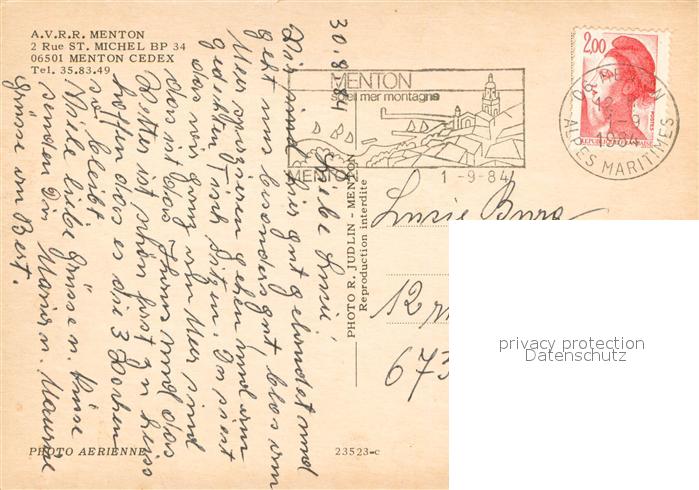 A.V.R.R. MENTON
2 Rue ST. MICHEL BP 34
06501 MENTON CEDEX
Tel. 35.83.49
30.8.84
Liebe Lucie!
Wir sind hier gut gelandet und
geht uns besonders gut, blos am
Meer spazieren gehen und am
gedeckten Tisch sitzen. Du siest
das wir ganz am Meer sind
das ist das Haus und das
Wetter ist schön fast zu heiss
hoffen das es die 3 Wochen
so bleibt
Viele liebe Grüsse u. Küsse
senden Dir Maria u. Maurice
Grüsse von Bert.
PHOTO AERIENNE
23523-c
PHOTO R. JUDLIN - MENTON
Reproduction interdite
MENTON
soleil mer montagne
MENTON
1-9-84
06 MENTON
1-9
1984
ALPES MARITIMES
2,00
POSTES
REPUBLIQUE FRANCAISE
Lucie
12
673
privacy protection
Datenschutz